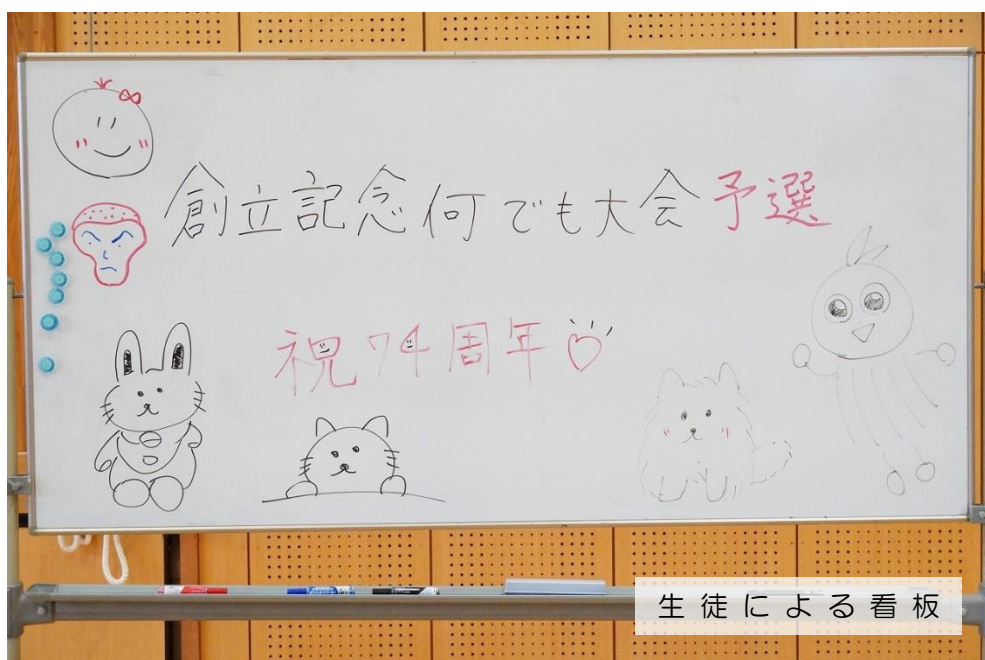 創立記念何でも大会予選
祝74周年
生徒による看板